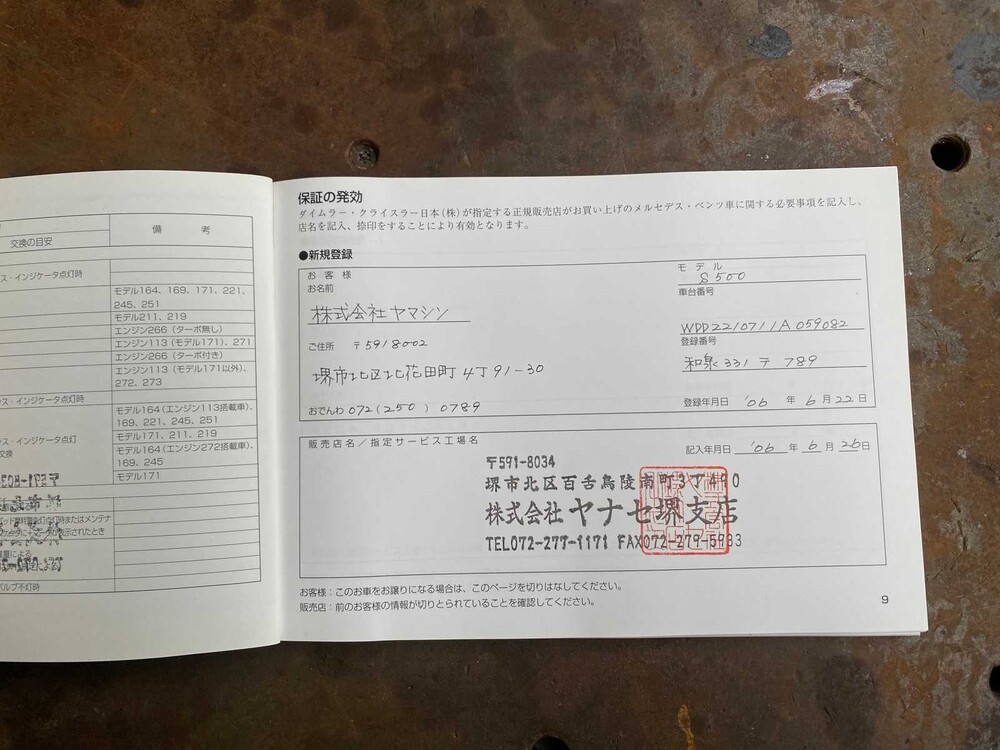 交換の目安
備　考
ス・インジケータ点灯時
モデル164、169、171、221、
245、251
モデル211、219
エンジン266（ターボ無し）
エンジン113（モデル171）、271
エンジン266（ターボ付き）
エンジン113（モデル171以外）、
272、273
ス・インジケータ点灯時
モデル164（エンジン113搭載車）、
169、221、245、251
ス・インジケータ点灯
交換
モデル171、211、219
モデル164（エンジン272搭載車）、
169、245
モデル171
バルブ不灯時
保証の発効
ダイムラー・クライスラー日本（株）が指定する正規販売店がお買い上げのメルセデス・ベンツ車に関する必要事項を記入し、
店名を記入、捺印をすることにより有効となります。
●新規登録
お客様
お名前
株式会社ヤマシン
ご住所　〒5918002
堺市北区北花田町4丁91-30
おでんわ 072（250）0789
モデル
S500
車台番号
WDD2210711A059082
登録番号
和泉 331 〒 789
登録年月日 '06 年 6月22日
販売店名／指定サービス工場名
記入年月日 '06 年 6月26日
〒591-8034
堺市北区百舌鳥陵南町3丁490
株式会社ヤナセ堺支店
TEL072-277-1171 FAX072-279-5933
お客様：このお車をお譲りになる場合は、このページを切りはなしてください。
販売店：前のお客様の情報が切りとられていることを確認してください。
9